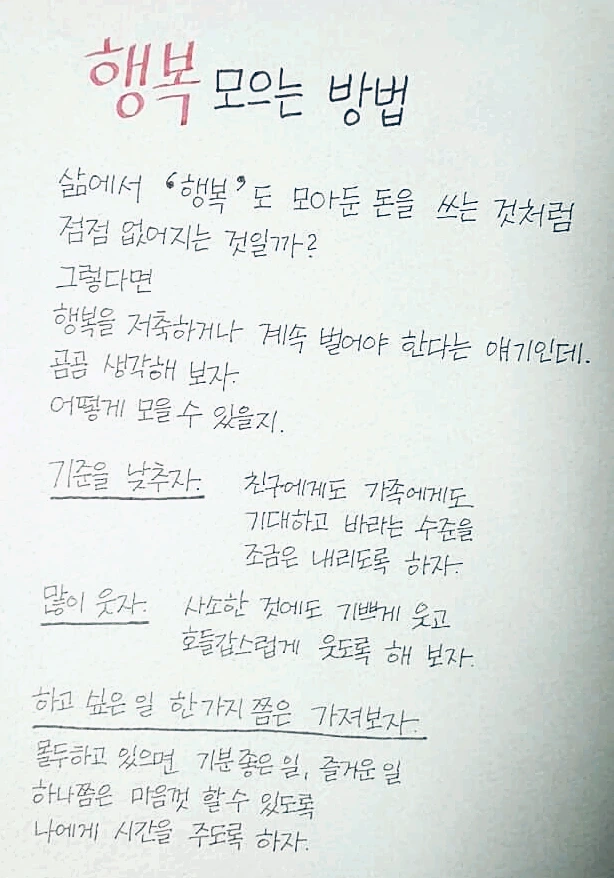 행복 모으는 방법
삶에서 '행복'도 모아둔 돈을 쓰는 것처럼
점점 없어지는 것일까?
그렇다면
행복을 저축하거나 계속 벌어야 한다는 얘기인데.
곰곰 생각해 보자.
어떻게 모을 수 있을지.
기준을 낮추자.
친구에게도 가족에게도
기대하고 바라는 수준을
조금은 내리도록 하자.
많이 웃자.
사소한 것에도 기쁘게 웃고
호들갑스럽게 웃도록 해 보자.
하고 싶은 일 한가지 쯤은 가져보자.
몰두하고 있으면 기분 좋은 일, 즐거운 일
하나쯤은 마음껏 할 수 있도록
나에게 시간을 주도록 하자.